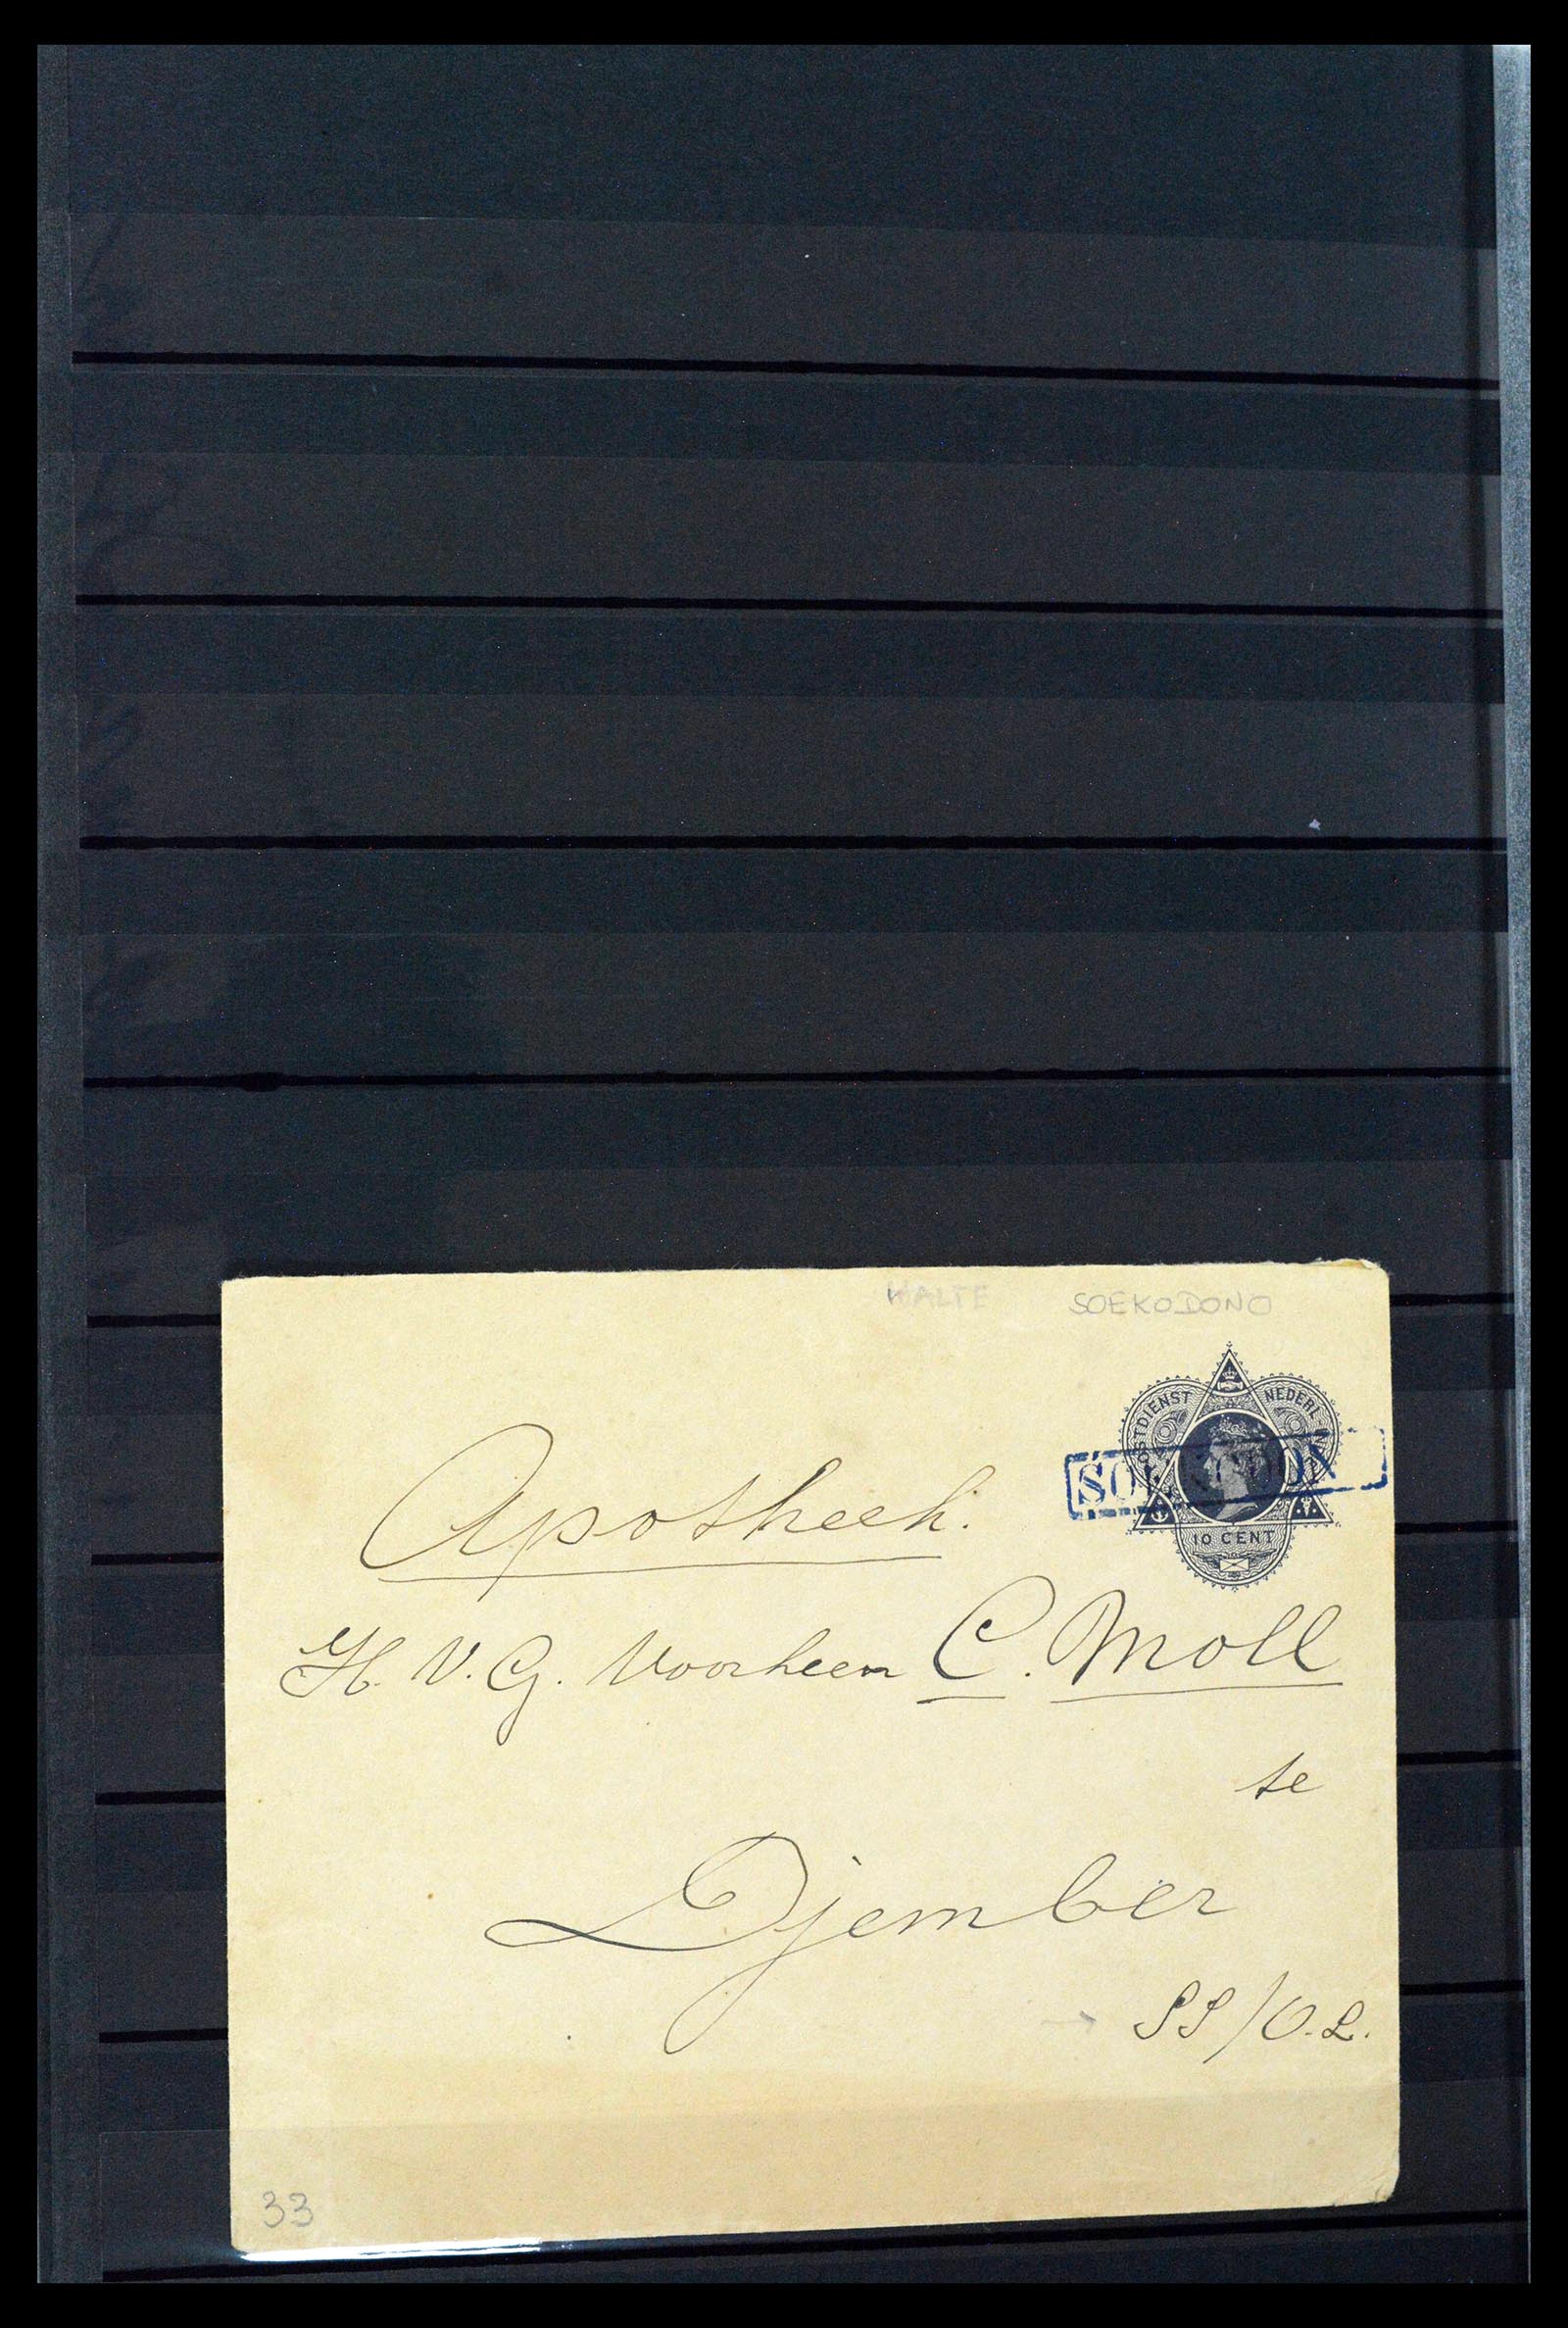 HALTE SOEKODONO
POSTDIENST NEDERL.
10 CENT
Apotheek.
H. V. G. Voorheen C. Moll
te
Djember
SS/O.L.
33